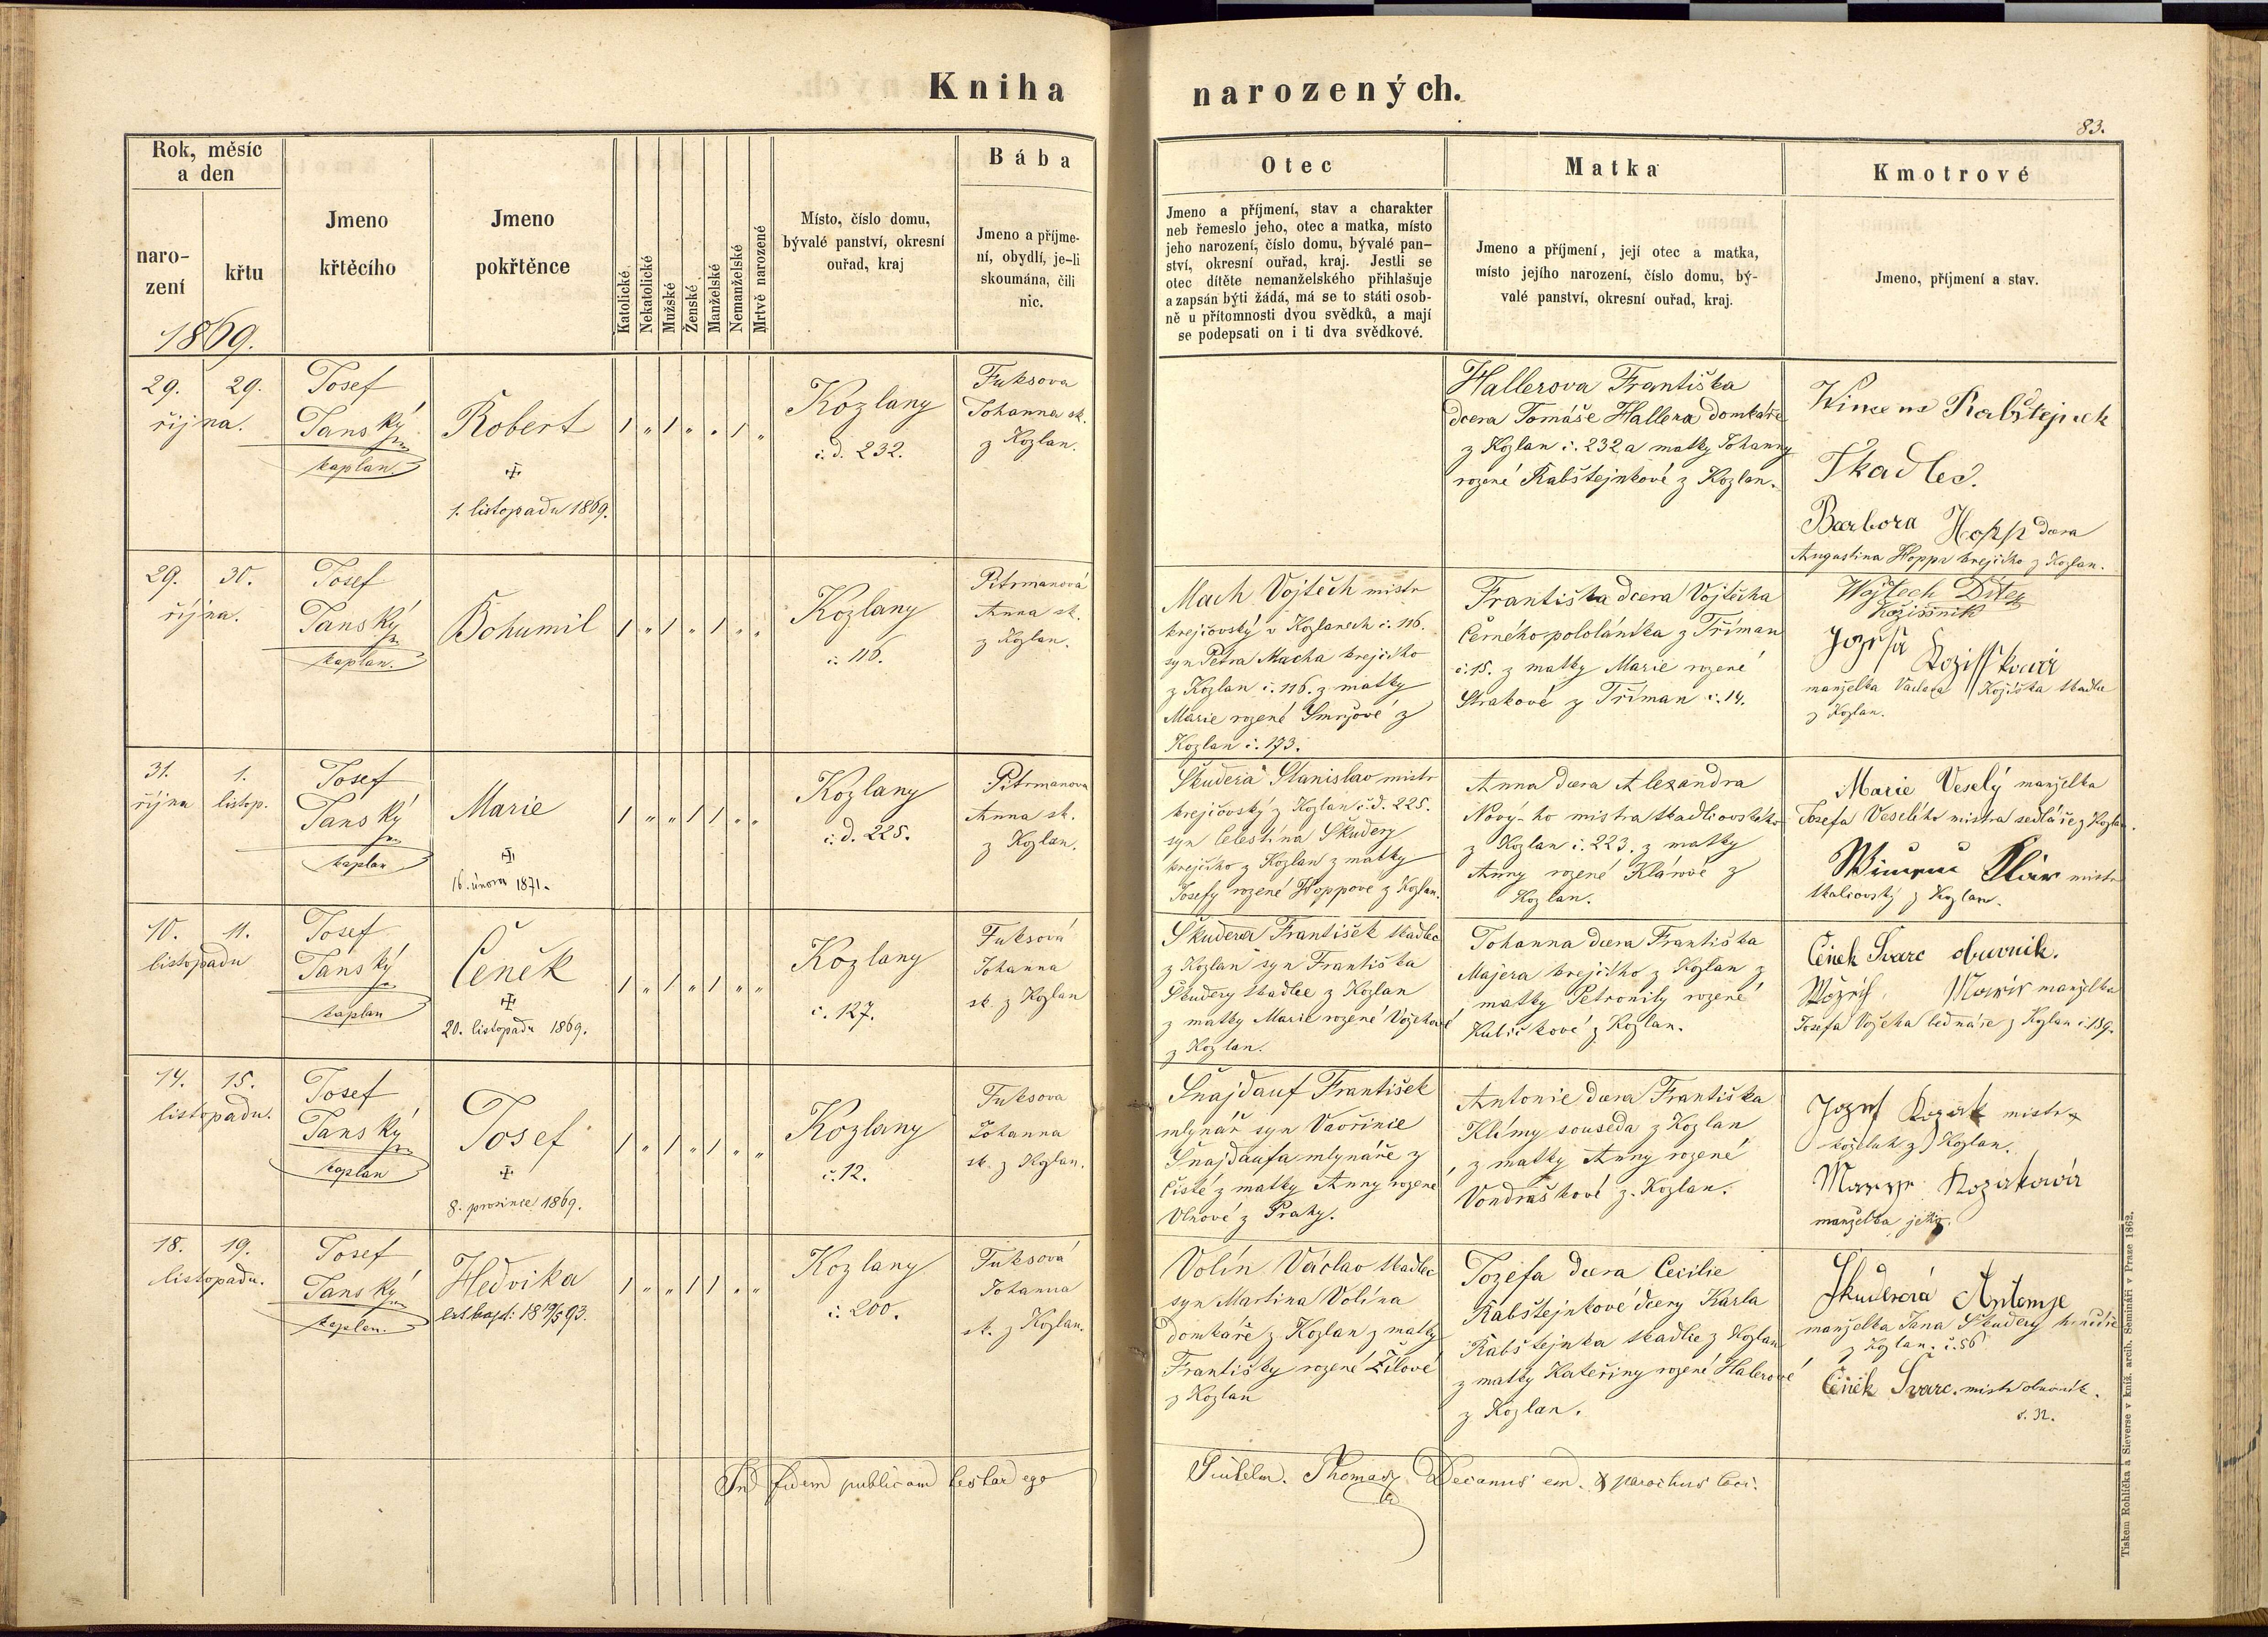 Kniha narozených.
83.
Rok, měsíc
a den
naro-
zení
křtu
1869.
Jmeno
křtěcího
Jmeno
pokřtěnce
Katolické
Nekatolické
Mužské
Ženské
Manželské
Nemanželské
Mrtvě narozené
Místo, číslo domu,
bývalé panství, okresní
ouřad, kraj
Bába
Jmeno a příjme-
ní, obydlí, je-li
skoumána, čili
nic.
Otec
Jmeno a příjmení, stav a charakter
neb řemeslo jeho, otec a matka, místo
jeho narození, číslo domu, bývalé pan-
ství, okresní ouřad, kraj. Jestli se
otec dítěte nemanželského přihlašuje
a zapsán býti žádá, má se to státi osob-
ně u přítomnosti dvou svědků, a mají
se podepsati on i ti dva svědkové.
Matka
Jmeno a příjmení, její otec a matka,
místo jejího narození, číslo domu, bý-
valé panství, okresní ouřad, kraj.
Kmotrové
Jmeno, příjmení a stav.
29. 29.
října.
Josef
Janský
kaplan.
Robert
1. listopadu 1869.
Kozlany
č. d. 232.
Fuksova
Johanna sk.
z Kozlan.
Hallerova Františka
dcera Tomáše Hallera domkáře
z Kozlan č. 232 a matky Johanny
rozené Rabštejnkové z Kozlan.
Rabštejnek
Tkadlec.
Barbora Hopp dcera
Augustina Hoppa krejčího z Kozlan.
29. 30.
října.
Josef
Janský
kaplan.
Bohumil
Kozlany
č. 116.
Pitrmanová
Anna sk.
z Kozlan.
Mach Vojtěch mistr
krejčovský v Kozlanech č. 116.
syn Petra Macha krejčího
z Kozlan č. 116. z matky
Marie rozené Smržové z
Kozlan č. 173.
Františka dcera Vojtěcha
Černého pololáníka z Tříman
č. 15. z matky Marie rozené
Strakové z Tříman č. 14.
Wojtech
manželka Václava Kožíška tkadlce
z Kozlan.
31. 1.
října listop.
Josef
Janský
kaplan
Marie
16. února 1871.
Kozlany
č. d. 225.
Pitrmanova
Anna sk.
z Kozlan.
Škudera Stanislav mistr
krejčovský z Kozlan č. d. 225.
syn Celestina Škudery
krejčího z Kozlan z matky
Josefy rozené Hoppove z Kozlan.
Anna dcera Alexandra
Nový-ho mistra tkadlcovského
z Kozlan č. 223. z matky
Anny rozené Klárové z
Kozlan.
Marie Veselý manželka
Josefa Veselého mistra sedláře z Kozlan.
Klár mistr
tkalcovský z Kozlan.
10. 11.
listopadu
Josef
Janský
kaplan
Čeněk
20. listopadu 1869.
Kozlany
č. 127.
Fuksová
Johanna
sk. z Kozlan
Škudera František tkadlec
z Kozlan syn Františka
Škudery tkadlce z Kozlan
z matky Marie rozené Vožehové
z Kozlan.
Johanna dcera Františka
Majera krejčího z Kozlan z
matky Petronily rozené
Kubičkové z Kozlan.
Čeněk Švarc obuvník.
manželka
Josefa Vožeha bednáře z Kozlan č. 189.
14. 15.
listopadu.
Josef
Janský
kaplan
Josef
8. prosince 1869.
Kozlany
č. 12.
Fuksova
Johanna
sk. z Kozlan.
Šnajdauf František
mlynář syn Vavřince
Šnajdaufa mlynáře z
Čisté z matky Anny rozené
Vlnové z Prahy.
Antonie dcera Františka
Klímy souseda z Kozlan
z matky Anny rozené
Vondraškové z Kozlan.
Jozef Kozak mistr
koželuh z Kozlan.
Kozakowá
manželka jeho.
18. 19.
listopadu.
Josef
Janský
kaplan.
Hedvika
Kozlany
č. 200.
Fuksová
Johanna
sk. z Kozlan.
Volín Václav tkadlec
syn Martina Volína
domkáře z Kozlan z matky
Františky rozené Žílové
z Kozlan
Jozefa dcera Cecilie
Rabštejnkové dcery Karla
Rabštejnka tkadlce z Kozlan
z matky Kateřiny rozené Halerové
z Kozlan.
Škuderová Antonie
manželka Jana Škudery
z Kozlan. č. 56
Čeněk Švarc. mistr obuvník.
č. 32.
In fidem publicam testar ego
Thomas Decanus em. & parochus loci.
Tiskem Rohlíčka a Sieverse v kníž. arcib. Semináři v Praze 1862.